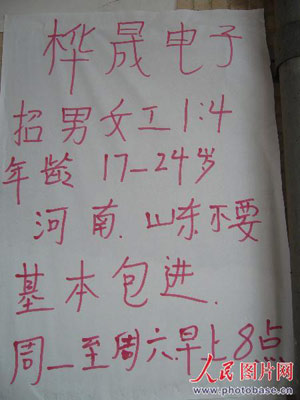 桦晟电子
招男女工1:4
年龄 17-24岁
河南.山东不要
基本包进.
周一至周六.早上8点
人民图片网
www.photobase.cn